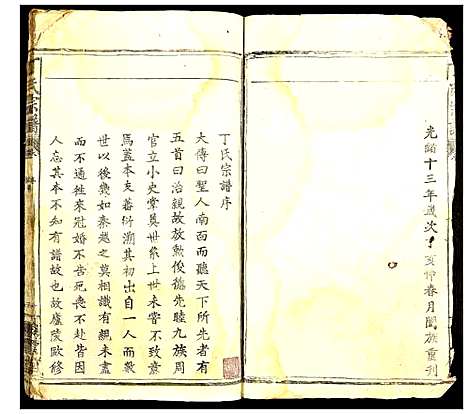 光緒十三年歲次丁亥仲春月闔族重刊
丁氏宗譜序
大傳曰聖人南面而聽天下所先者有
五首曰治親故放勲俊德先睦九族周
官立小史掌奠世系上世未嘗不致意
焉蓋本支蕃衍溯其初出自一人而兩
世以後幾如秦越之莫相識有親未盡
而不通往來冠婚不告死喪不赴皆因
人忘其本不知有譜故也故廬陵歐修